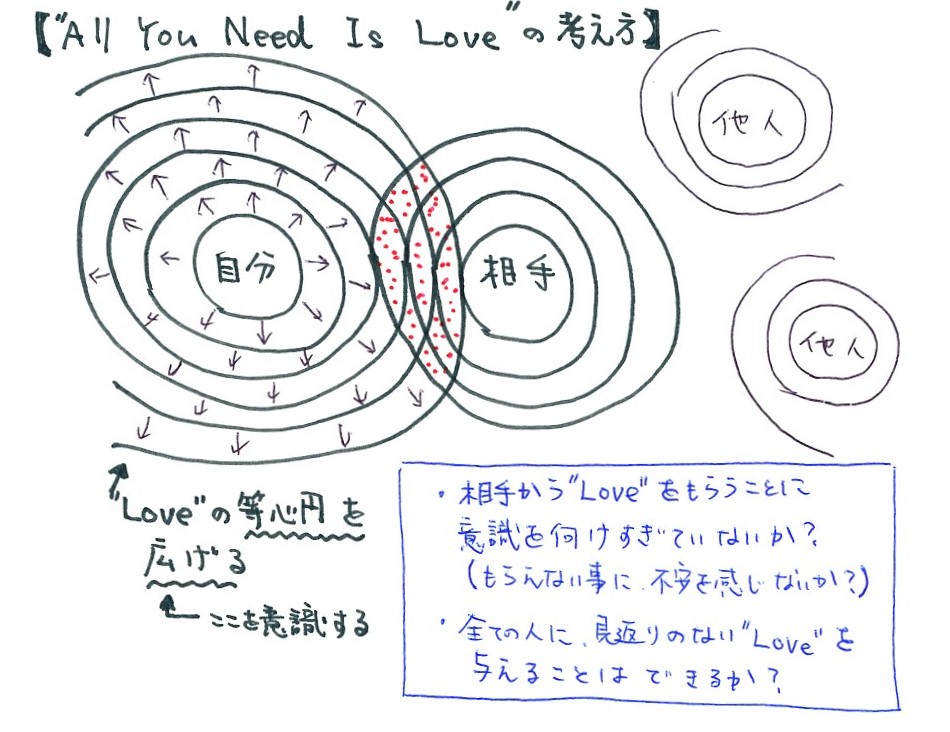 【"All You Need Is Love"の考え方】
他人
自分
相手
他人
"Love"の等心円を
広げる
ここを意識する
・相手から"Love"をもらうことに
意識を何けすぎていないか?
(もらえない事に、不安を感じないか?)
・全ての人に、見返りのない"Love"を
与えることはできるか?